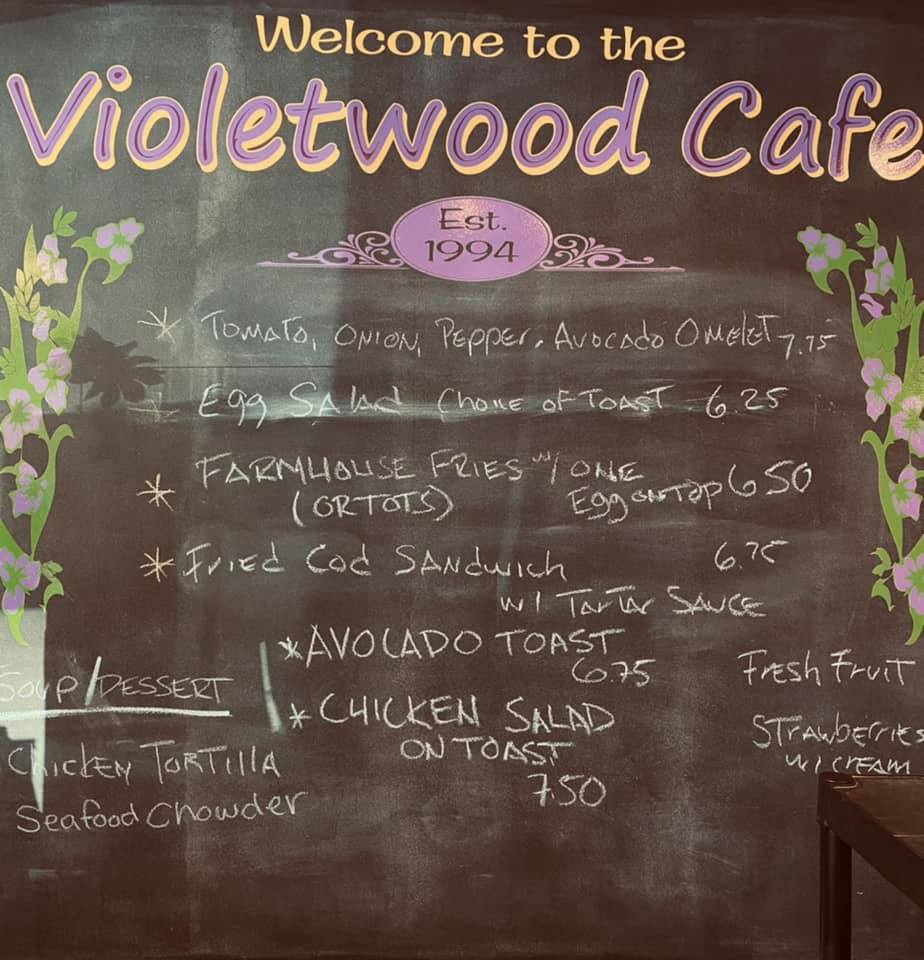 Welcome to the
Violetwood Cafe
Est.
1994
* Tomato, Onion, Pepper, Avocado Omelet 7.75
* Egg Salad Choice of Toast 6.25
* FARMHOUSE FRIES w/ ONE
(OR TOTS) Egg on Top 6.50
* Fried Cod Sandwich 6.75
w/ Tartar Sauce
* AVOCADO TOAST
6.75
* CHICKEN SALAD
ON TOAST
7.50
Soup/DESSERT
Chicken Tortilla
Seafood Chowder
Fresh Fruit
Strawberries
w/ cream